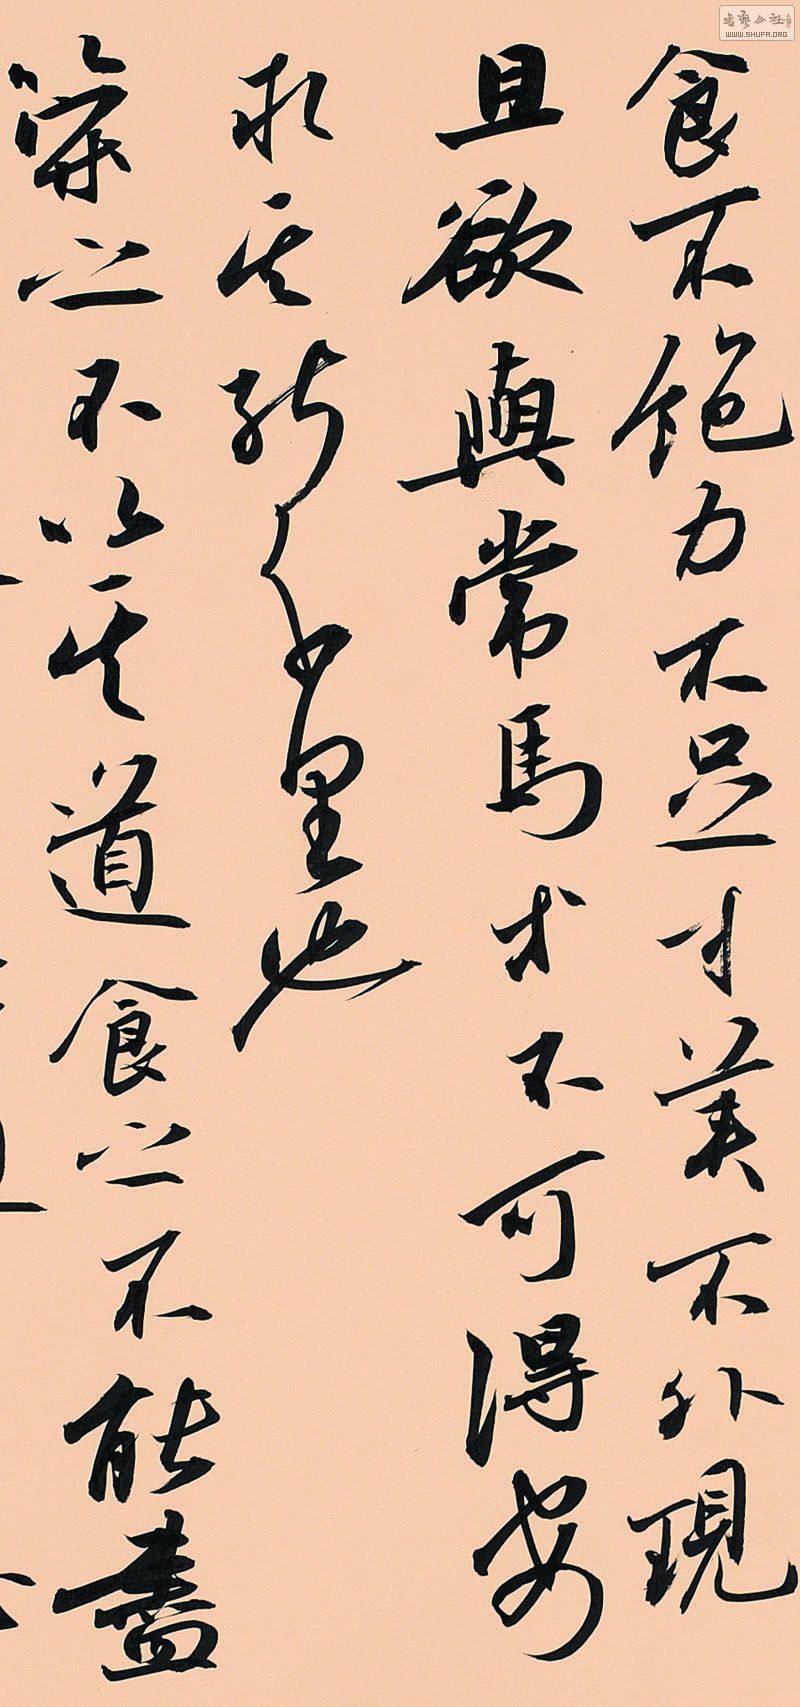 食不飽力不足才美不外現
且欲與常馬等不可得安
求其能千里也
策之不以其道食之不能盡
书艺公社
WWW.SHUFA.ORG